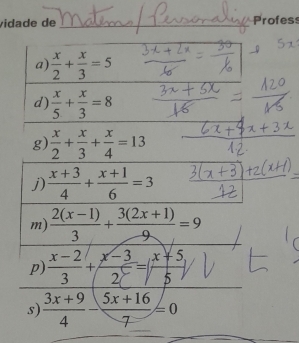 vidade de Matema/Personaliza Profess
a) x/2 + x/3 = 5 (3x + 2x)/6 = 30/6 5x
d) x/5 + x/3 = 8 (3x + 5x)/15 = 120/15
g) x/2 + x/3 + x/4 = 13 (6x + 4x + 3x)/12
j) (x+3)/4 + (x+1)/6 = 3 (3(x+3)+2(x+1))/12 =
m) 2(x−1)/3 + 3(2x+1)/9 = 9
p) (x−2)/3 + (x−3)/2 = (x+5)/5
s) (3x+9)/4 − (5x+16)/7 = 0